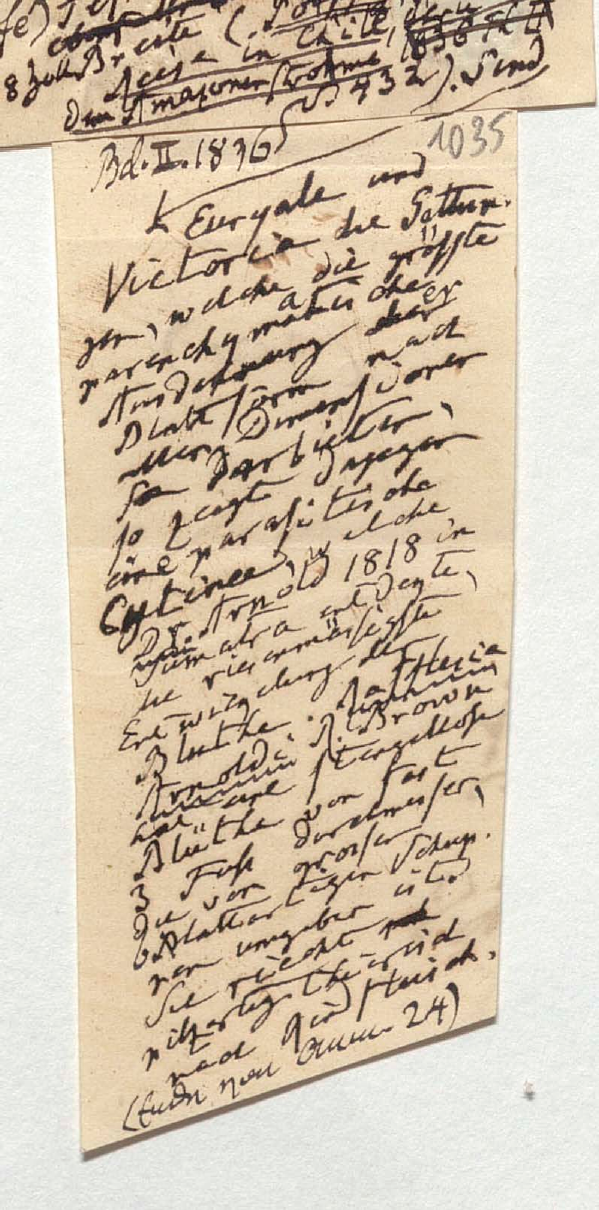 8 Zoll Breite (
Reise in Chile,
dem Amazonenstrohme
S 432). Sind
Bd. II. 1836
1035
Euryale und
Victoria die Gattun-
gen, welche die größte
parenchymatische
Ausdehnung der
Blattform nach
allen Dimensionen
darbieten,
so zeigt dagegen
eine parasitische
Cytinee, welche
Dr. Arnold 1818 in
Sumatra entdeckte,
die riesenmäßigste
Entwicklung der
Blüthe. Rafflesia
Arnoldi R. Brown
hat eine stengellose
Blüthe von fast
3 Fuß durchmesser,
die von großen
blattartigen Schup-
pen umgeben ist.
Sie riecht
pilzartig thierisch
nach Rindfleisch.
24)